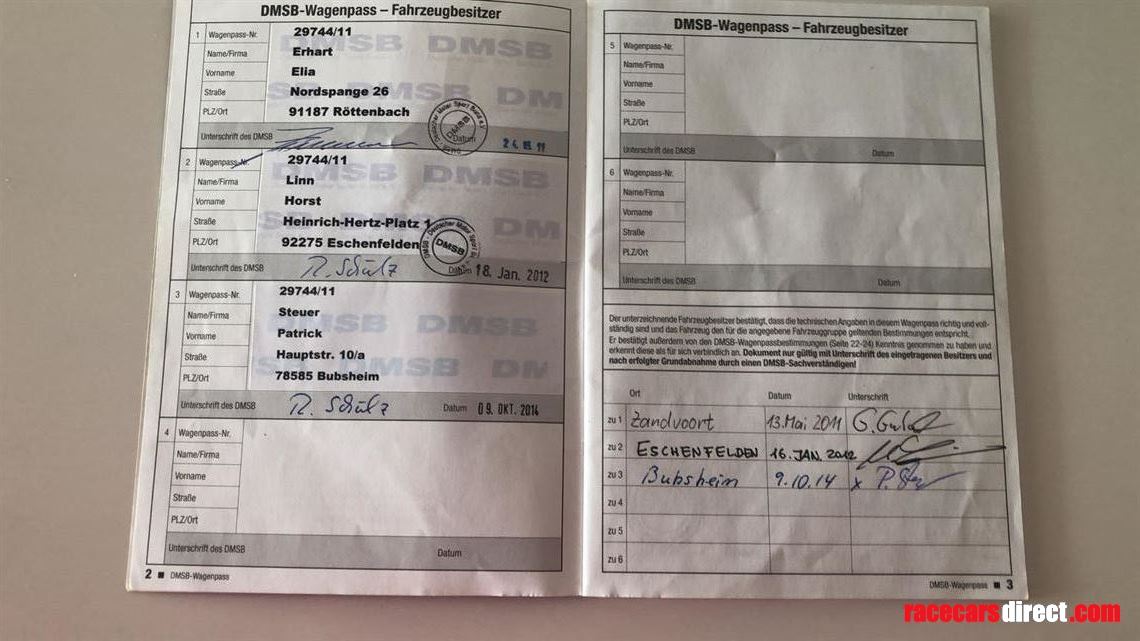 DMSB-Wagenpass – Fahrzeugbesitzer
1 Wagenpass-Nr. 29744/11
Name/Firma Erhart
Vorname Elia
Straße Nordspange 26
PLZ/Ort 91187 Röttenbach
Unterschrift des DMSB Datum
DMSB
2 Wagenpass-Nr. 29744/11
Name/Firma Linn
Vorname Horst
Straße Heinrich-Hertz-Platz 1
PLZ/Ort 92275 Eschenfelden
Unterschrift des DMSB R. Schulz Datum 18. Jan. 2012
DMSB
3 Wagenpass-Nr. 29744/11
Name/Firma Steuer
Vorname Patrick
Straße Hauptstr. 10/a
PLZ/Ort 78585 Bubsheim
Unterschrift des DMSB R. Schulz Datum 09. OKT. 2014
4 Wagenpass-Nr.
Name/Firma
Vorname
Straße
PLZ/Ort
Unterschrift des DMSB Datum
2 ■ DMSB-Wagenpass
DMSB-Wagenpass – Fahrzeugbesitzer
5 Wagenpass-Nr.
Name/Firma
Vorname
Straße
PLZ/Ort
Unterschrift des DMSB Datum
6 Wagenpass-Nr.
Name/Firma
Vorname
Straße
PLZ/Ort
Unterschrift des DMSB Datum
Der unterzeichnende Fahrzeugbesitzer bestätigt, dass die technischen Angaben in diesem Wagenpass richtig und voll-
ständig sind und das Fahrzeug den für die angegebene Fahrzeuggruppe geltenden Bestimmungen entspricht.
Er bestätigt außerdem von den DMSB-Wagenpassbestimmungen (Seite 22-24) Kenntnis genommen zu haben und
erkennt diese als für sich verbindlich an. Dokument nur gültig mit Unterschrift des eingetragenen Besitzers und
nach erfolgter Grundabnahme durch einen DMSB-Sachverständigen!
Ort Datum Unterschrift
zu 1 Zandvoort 13. Mai 2011
zu 2 ESCHENFELDEN 16. JAN. 2012
zu 3 Bubsheim 9.10.14 x
zu 4
zu 5
zu 6
DMSB-Wagenpass ■ 3
racecarsdirect.com